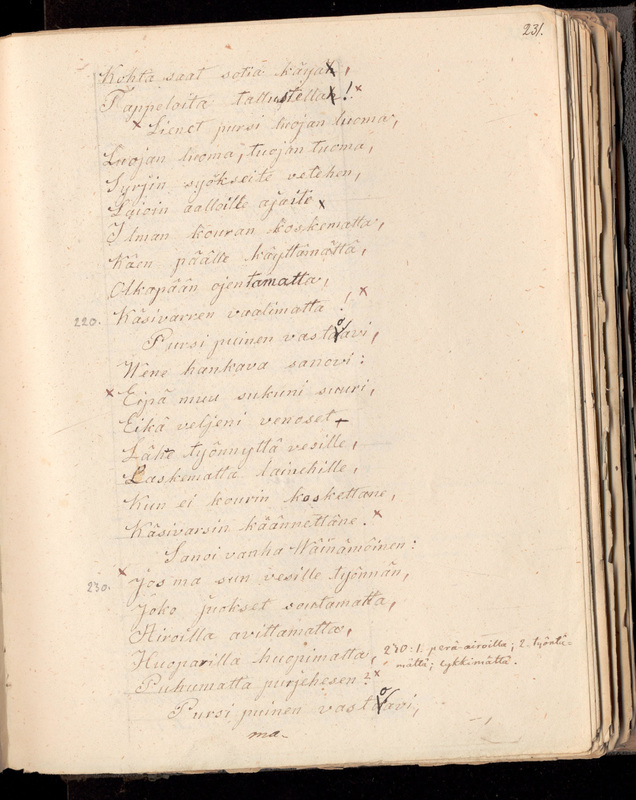 231.
Kohta saat sotia käyä,
Tappeloita tallustella!
Lienet pursi luojan luoma,
Luojan luoma, tuojan tuoma,
Syrjin syökseite vetehen,
Lajoin aalloille ajaite
Ilman kouran koskematta,
Käen päälle käyttämättä,
Olkapään ojentamatta,
220. Käsivarren vaalimatta!
Pursi puinen vastoavi,
Wene hankava sanovi:
Eipä muu sukuni suuri,
Eikä veljeni venoset
Lähe työnnyttä vesille,
Laskematta lainehille,
Kun ei kourin koskettane,
Käsivarsin käännettäne.
Sanoi vanha Wäinämöinen:
230. Jos ma sun vesille työnnän,
Joko juokset soutamatta,
Airoilla avittamatta,
Huoparilla huopimatta,
Puhumatta purjehesen?
230: 1. perä-airoilla; 2. työntä-
mättä; lykkimättä.
Pursi puinen vastoavi,
ma-